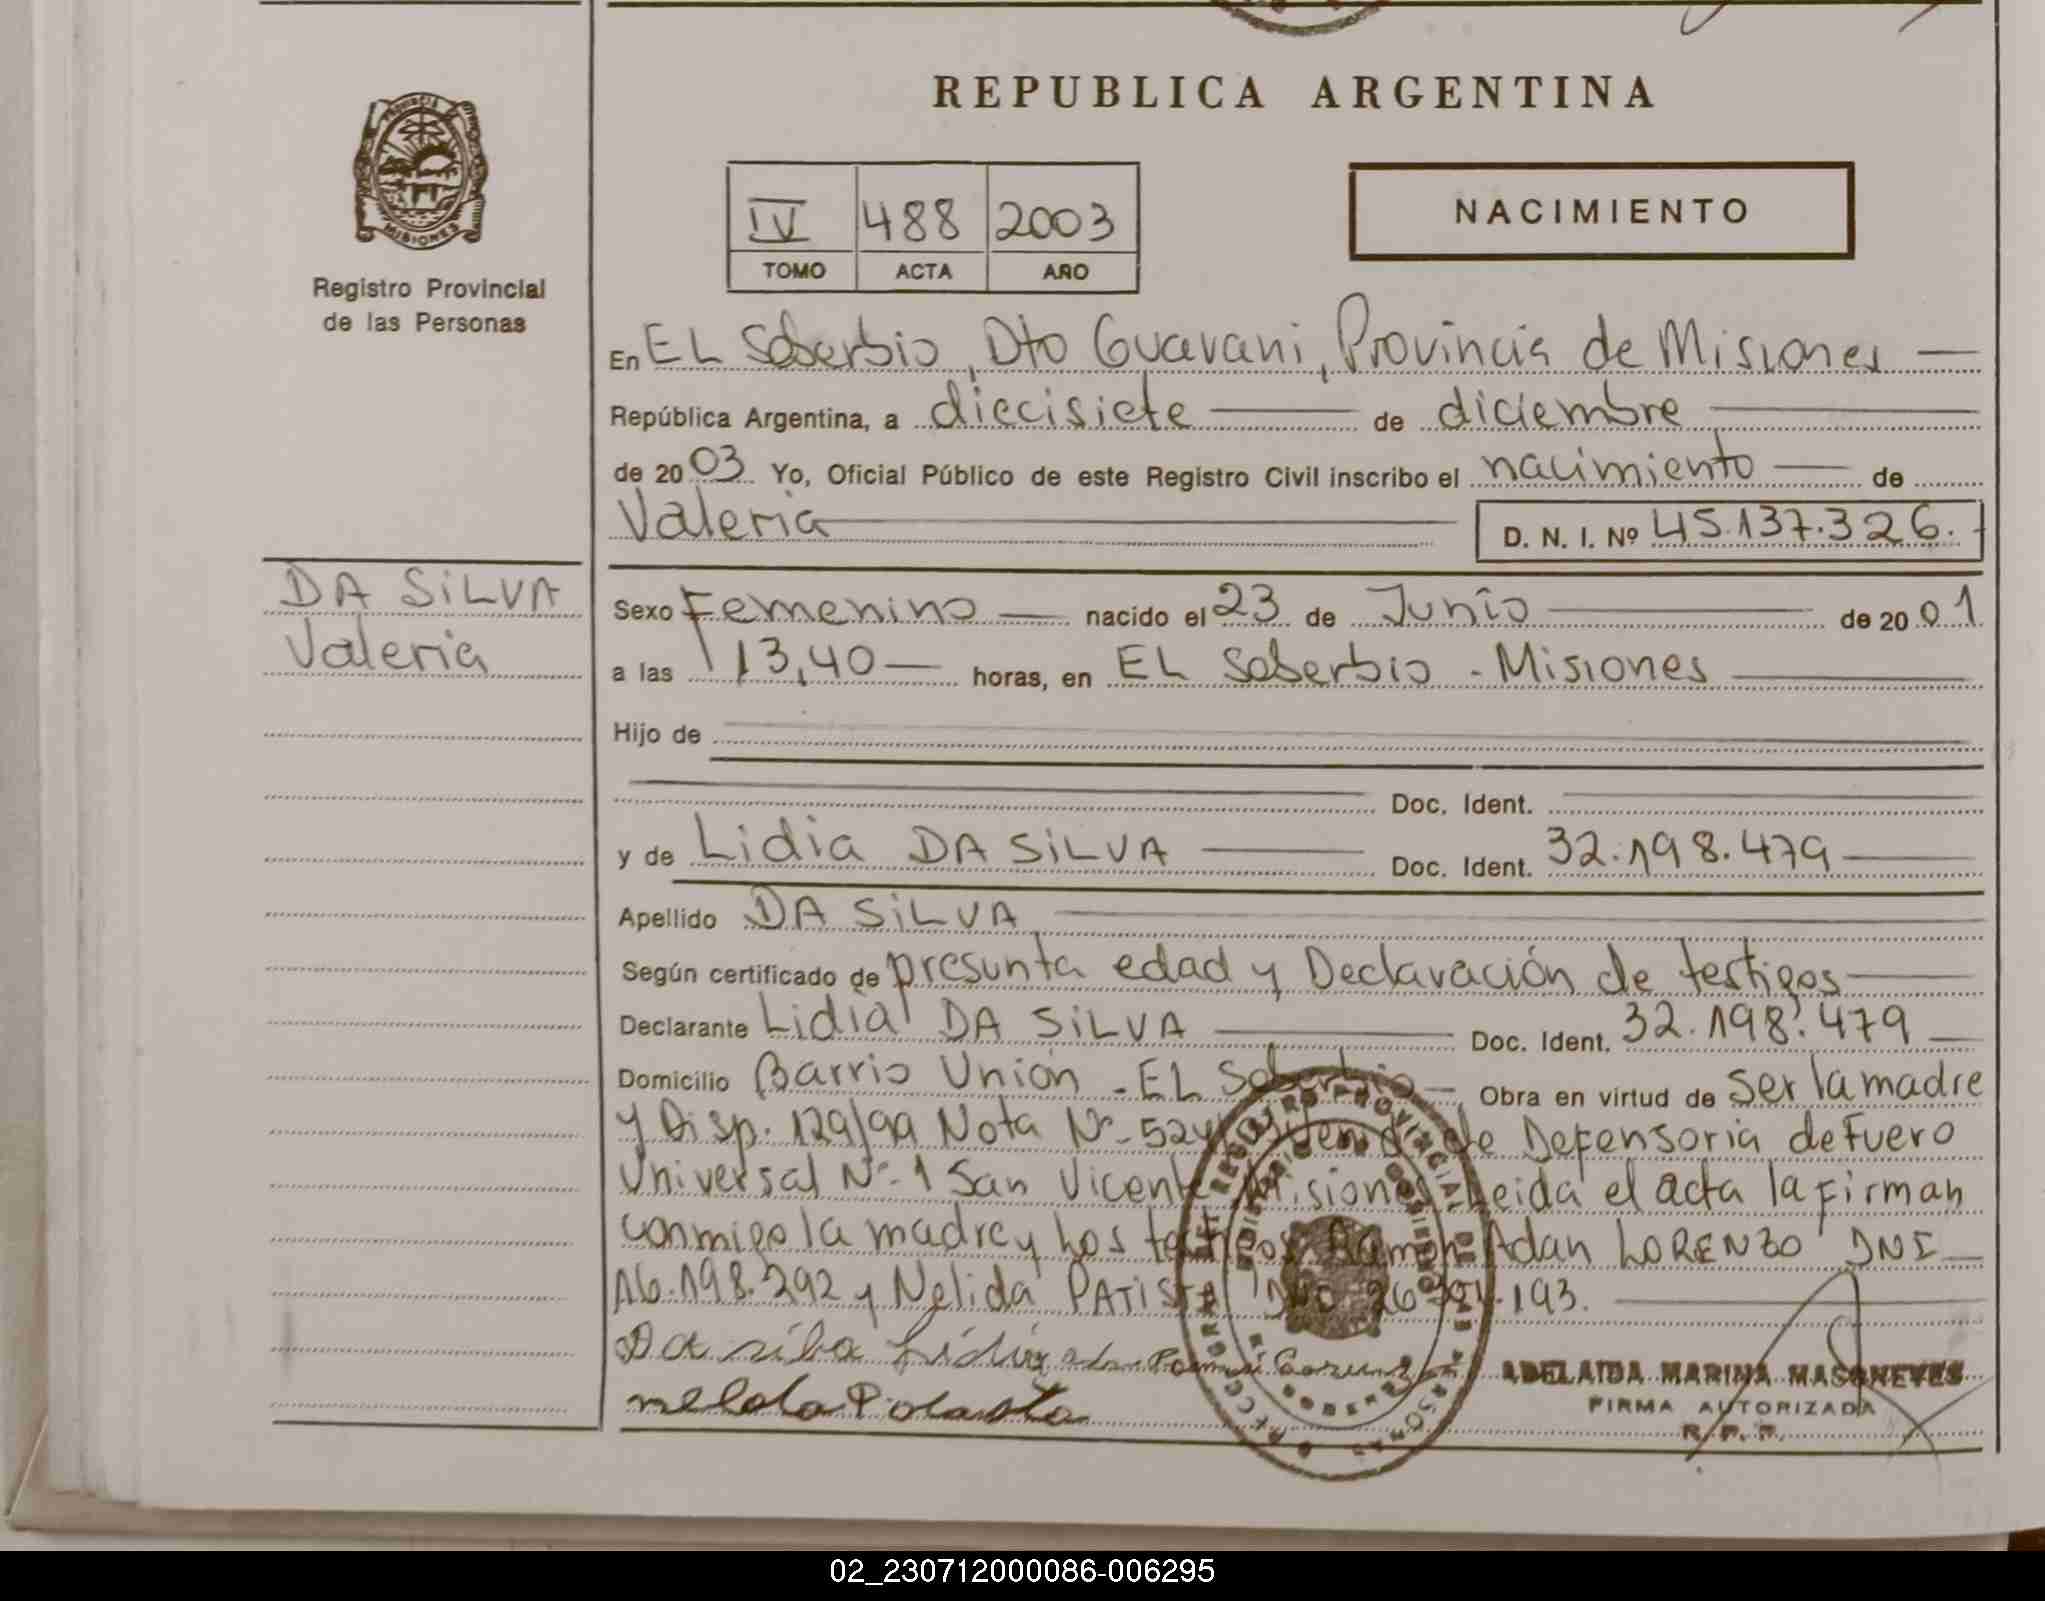 REPUBLICA ARGENTINA
PROVINCIA
MISIONES
Registro Provincial
de las Personas
IV 488 2003
TOMO ACTA AÑO
NACIMIENTO
En EL Soberbio, Dto Guarani, Provincia de Misiones
República Argentina, a diecisiete de diciembre
de 2003 Yo, Oficial Público de este Registro Civil inscribo el nacimiento de
Valeria D. N. I. Nº 45.137.326.
DA SiLVA
Valeria
Sexo Femenino nacido el 23 de Junio de 2001
a las 13,40 horas, en EL Soberbio - Misiones
Hijo de
Doc. Ident.
y de Lidia DA SiLVA Doc. Ident. 32.198.479
Apellido DA SiLVA
Según certificado de presunta edad y Declaración de testigos
Declarante Lidia DA SiLVA Doc. Ident. 32.198.479
Domicilio Barrio Unión - EL Soberbio Obra en virtud de Ser la madre
y Disp. 129/99 Nota Nº 524 de Defensoria de Fuero
Universal Nº 1 San Vicente Misiones Leida el acta la Firman
conmigo la madre y Los testigos Ramon Adan LORENZO DNI
16.198.292 y Nelida PATISTA 193.
Da silba Lidia
ADELAIDA MARINA MASONEVES
FIRMA AUTORIZADA
R. P. P.
REGISTRO PROVINCIAL DE
02_230712000086-006295